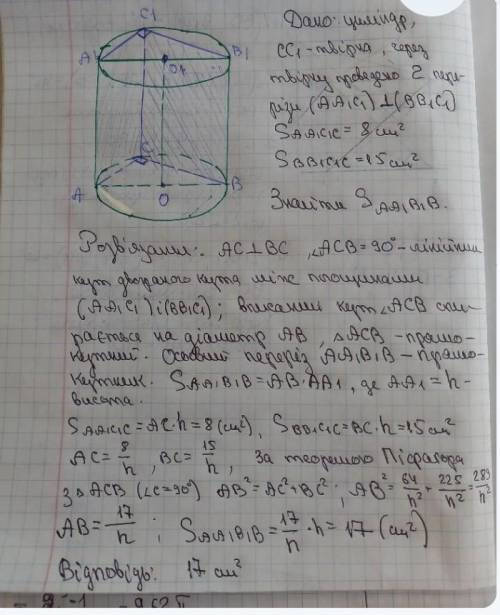 Дано: циліндр,
CC₁-твірна, через
твірну проведено 2 пере-
різи (AA₁C₁)⊥(BB₁C₁)
S AA₁C₁C = 8 см²
S BB₁C₁C = 15 см²
Знайти S AA₁B₁B.
C₁
A₁ O₁ B₁
C
A O B
Розв'язання: AC⊥BC, ∠ACB=90°-лінійний
кут двогранного кута між площинами
(AA₁C₁) і (BB₁C₁); вписаний кут ∠ACB спи-
рається на діаметр AB, △ACB -прямо-
кутний. Осьовий переріз AA₁B₁B-прямо-
кутник. S AA₁B₁B = AB·AA₁, де AA₁=h-
висота.
S AA₁C₁C = AC·h = 8 (см²), S BB₁C₁C = BC·h = 15 см²
AC = 8/h, BC = 15/h, за теоремою Піфагора
з △ACB (∠C=90°) AB² = AC²+BC²; AB² = 64/h² + 225/h² = 289/h²
AB = 17/h; S AA₁B₁B = 17/h · h = 17 (см²)
Відповідь: 17 см²